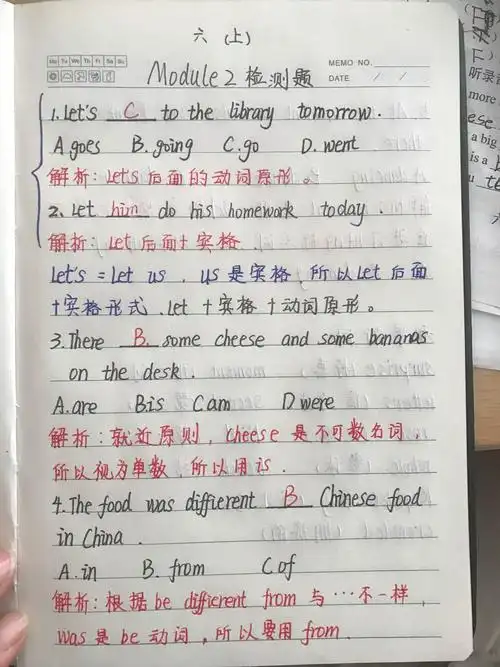 六 (上)
Mo Tu We Th Fr Sa Su
MEMO NO.
DATE / /
Module 2 检测题
1. Let's C to the library tomorrow.
A. goes B. going C. go D. went
解析: Let's 后面的动词原形。
2. Let him do his homework today.
解析: Let 后面+宾格
Let's = Let us , us 是宾格, 所以 Let 后面
+宾格形式. Let +宾格+动词原形。
3. There B. some cheese and some bananas
on the desk.
A. are B is C am D were
解析: 就近原则, cheese 是不可数名词,
所以视为单数, 所以用 is.
4. The food was diffierent B Chinese food
in China.
A. in B. from C of
解析: 根据 be different from 与…不一样,
was 是 be 动词, 所以要用 from.
听录音
more
ese
a big
is a